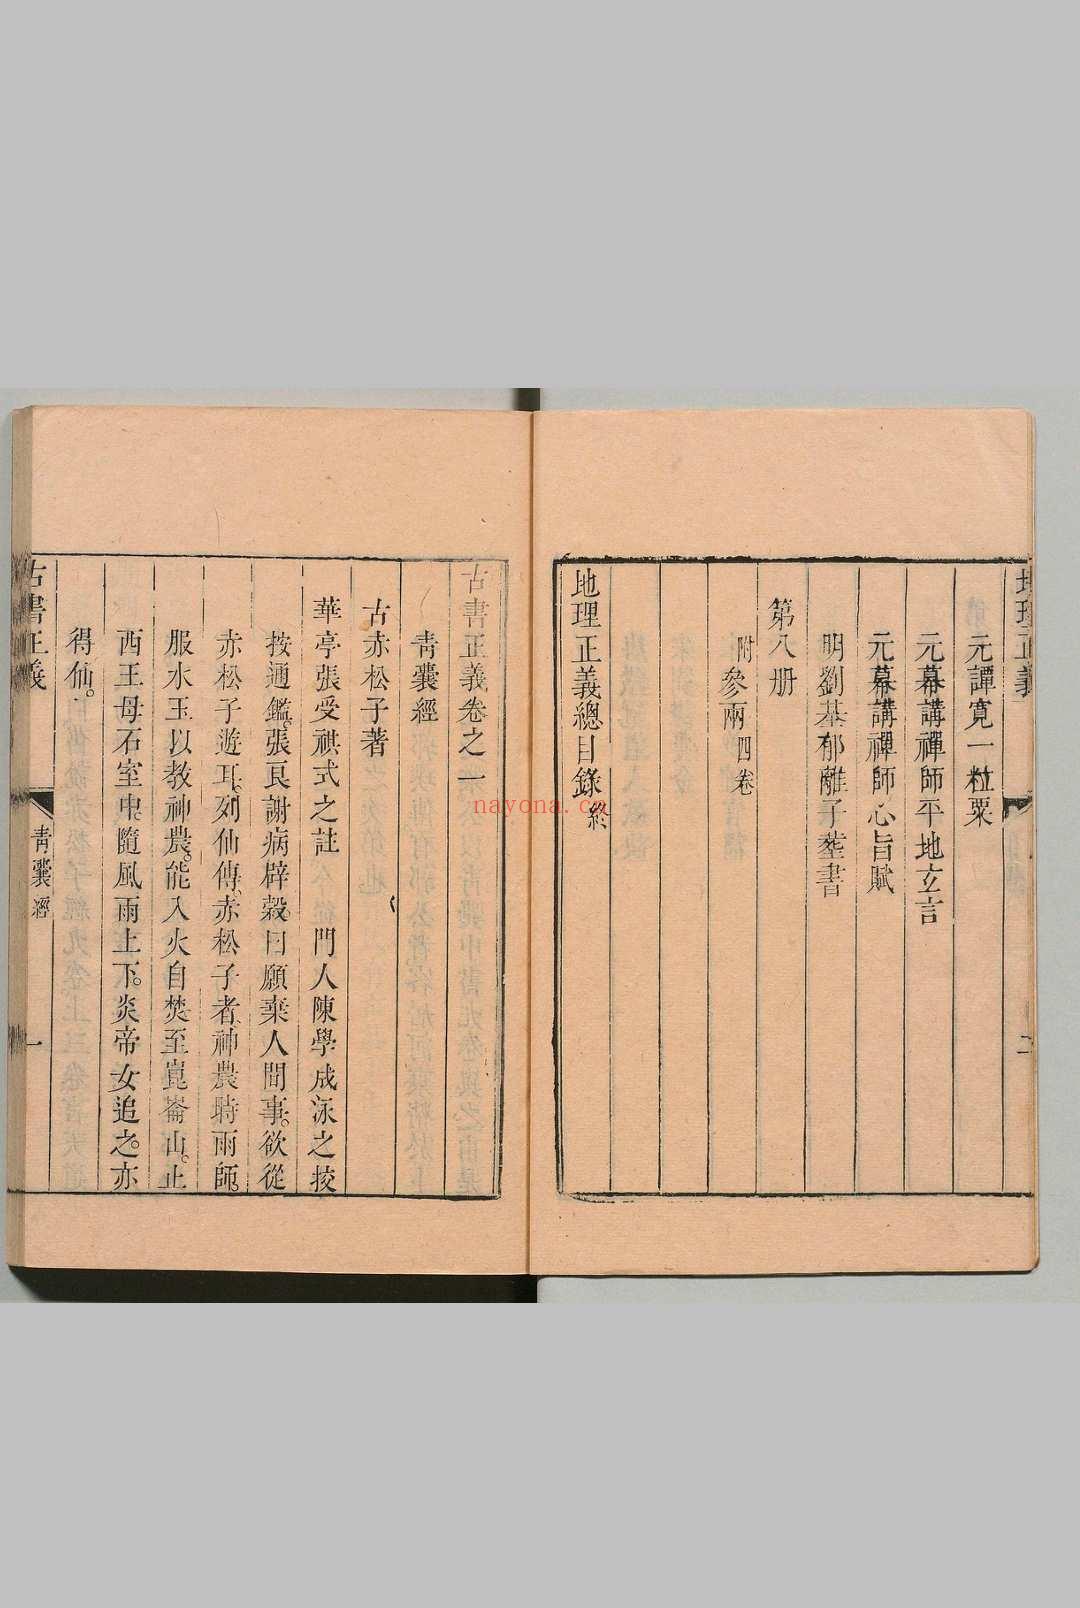 地理正義
二
元譚寬一粒粟
元幕講禪師平地玄言
元幕講禪師心旨賦
明劉基郁離子葬書
第八册
附參兩四卷
地理正義總目錄終
古書正義卷之一
青囊經
古赤松子著
華亭張受祺式之註 門人陳學成泳之挍
按通鑑。張良謝病辟穀。曰願棄人間事。欲從
赤松子遊耳。列仙傳。赤松子者。神農時雨師。
服水玉以教神農。能入火自焚。至崑崙山。止
西王母石室中。隨風雨上下。炎帝女追之。亦
得仙。
古書正義
青囊經
一
nayona.cn